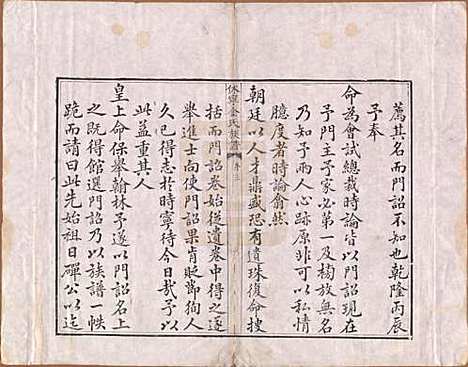 薦其名而門詔不知也乾隆丙辰
予奉
命為會試總裁時論皆以門詔現在
予門主予家必第一及榜放無名
乃知予兩人心跡原非可以私情
臆度者時論翕然
朝廷以人才鼎盛恐有遺珠復命搜
休寧金氏族譜 卷三
括而門詔卷始從遺卷中得之遂
舉進士向使門詔果肯貶節徇人
久已得志於時寧待今日哉予以
此益重其人
皇上命保舉翰林予遂以門詔名上
之既得館選門詔乃以族譜一帙
跪而請曰此先始祖日磾公以迄